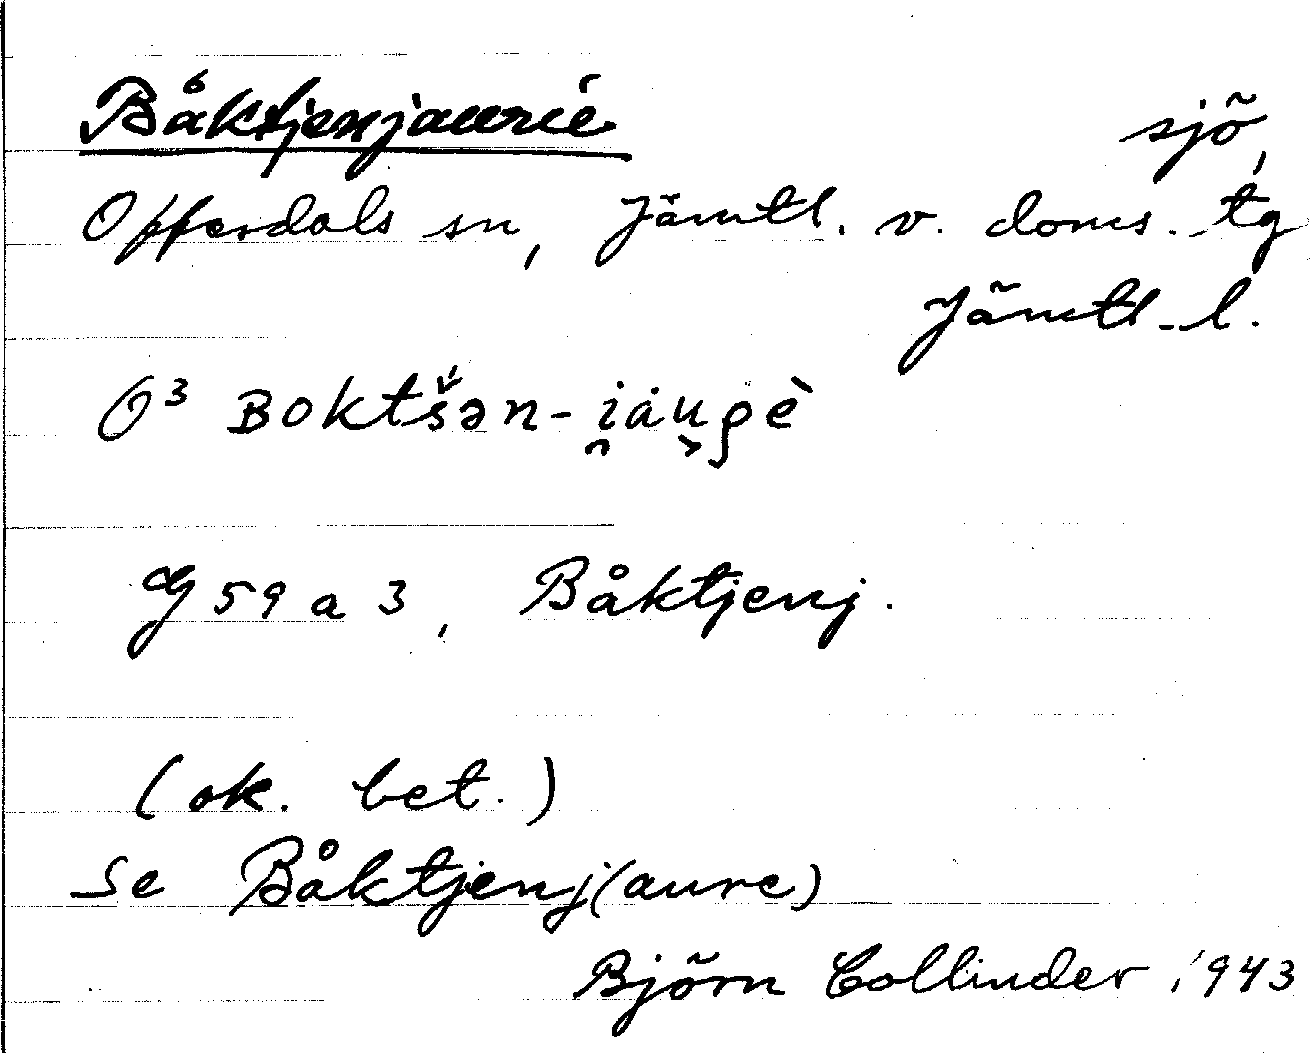 Båktjenjaurie sjö,
Offerdals sn, Jämtl. v. doms. tg
Jämtl. l.
O³ Boktšən-i̯ȧu̯ρè
G 59 a 3, Båktjenj.
(ok. bet.)
Se Båktjenj(aure)
Björn Collinder 1943